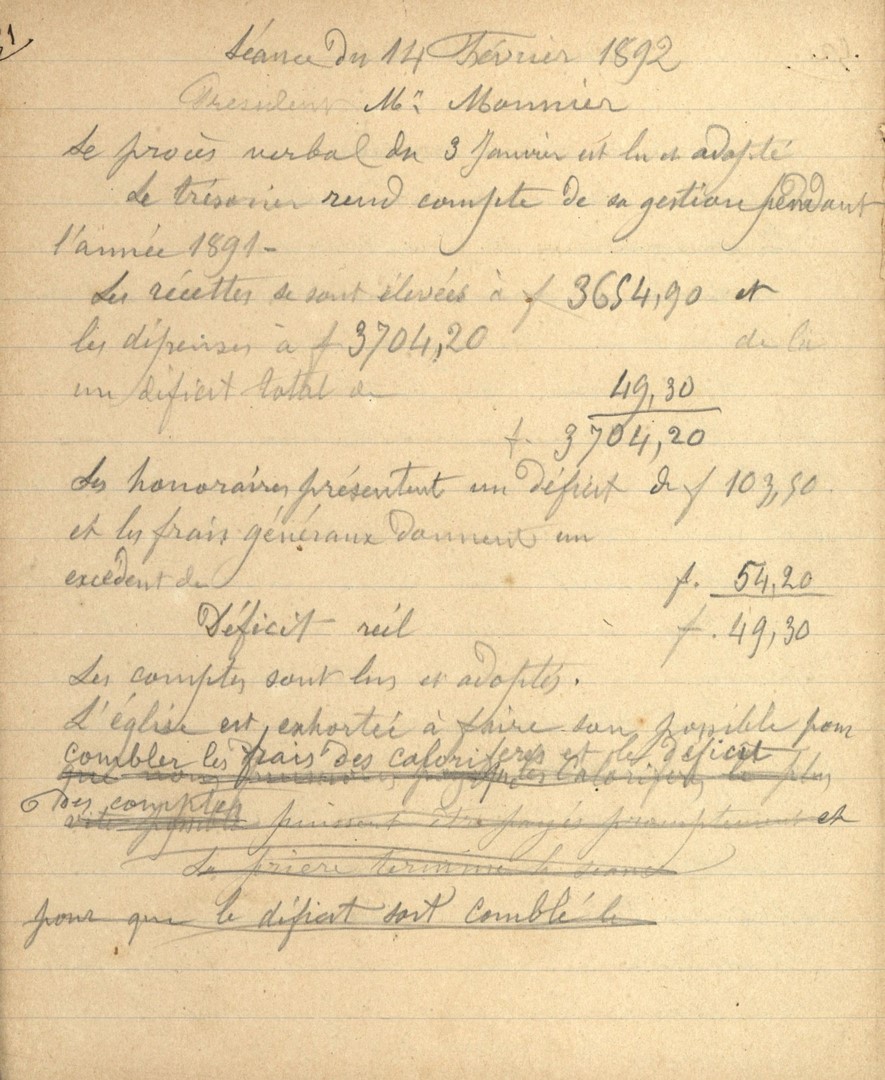 Séance du 14 Février 1892
Président Mr. Monnier
Le procès verbal du 3 Janvier est lu et adopté
Le trésorier rend compte de sa gestion pendant
l'année 1891-
Les récettes se sont élevées à f 3654,90 et
les dépenses à f 3704,20 de là
un déficit total de 49,30
f. 3704,20
Les honoraires présentent un déficit de f 103,50
et les frais généraux donnent un
excédent de f. 54,20
Déficit réel f. 49,30
Les comptes sont lus et adoptés.
L'église est exhortée à faire son possible pour
combler les frais des calorifères et le déficit
que nous puissions calorifères le plus
des comptes
vite possible puissent être payés promptement et
La prière termine la séance
pour que le déficit soit comblé le